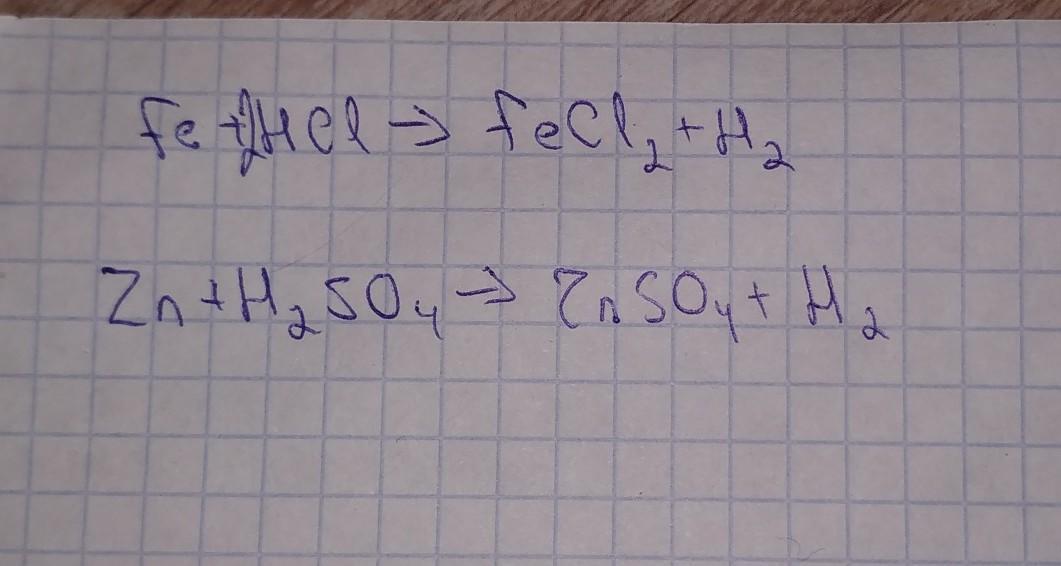 Fe + 2HCl → FeCl₂ + H₂
Zn + H₂SO₄ → ZnSO₄ + H₂